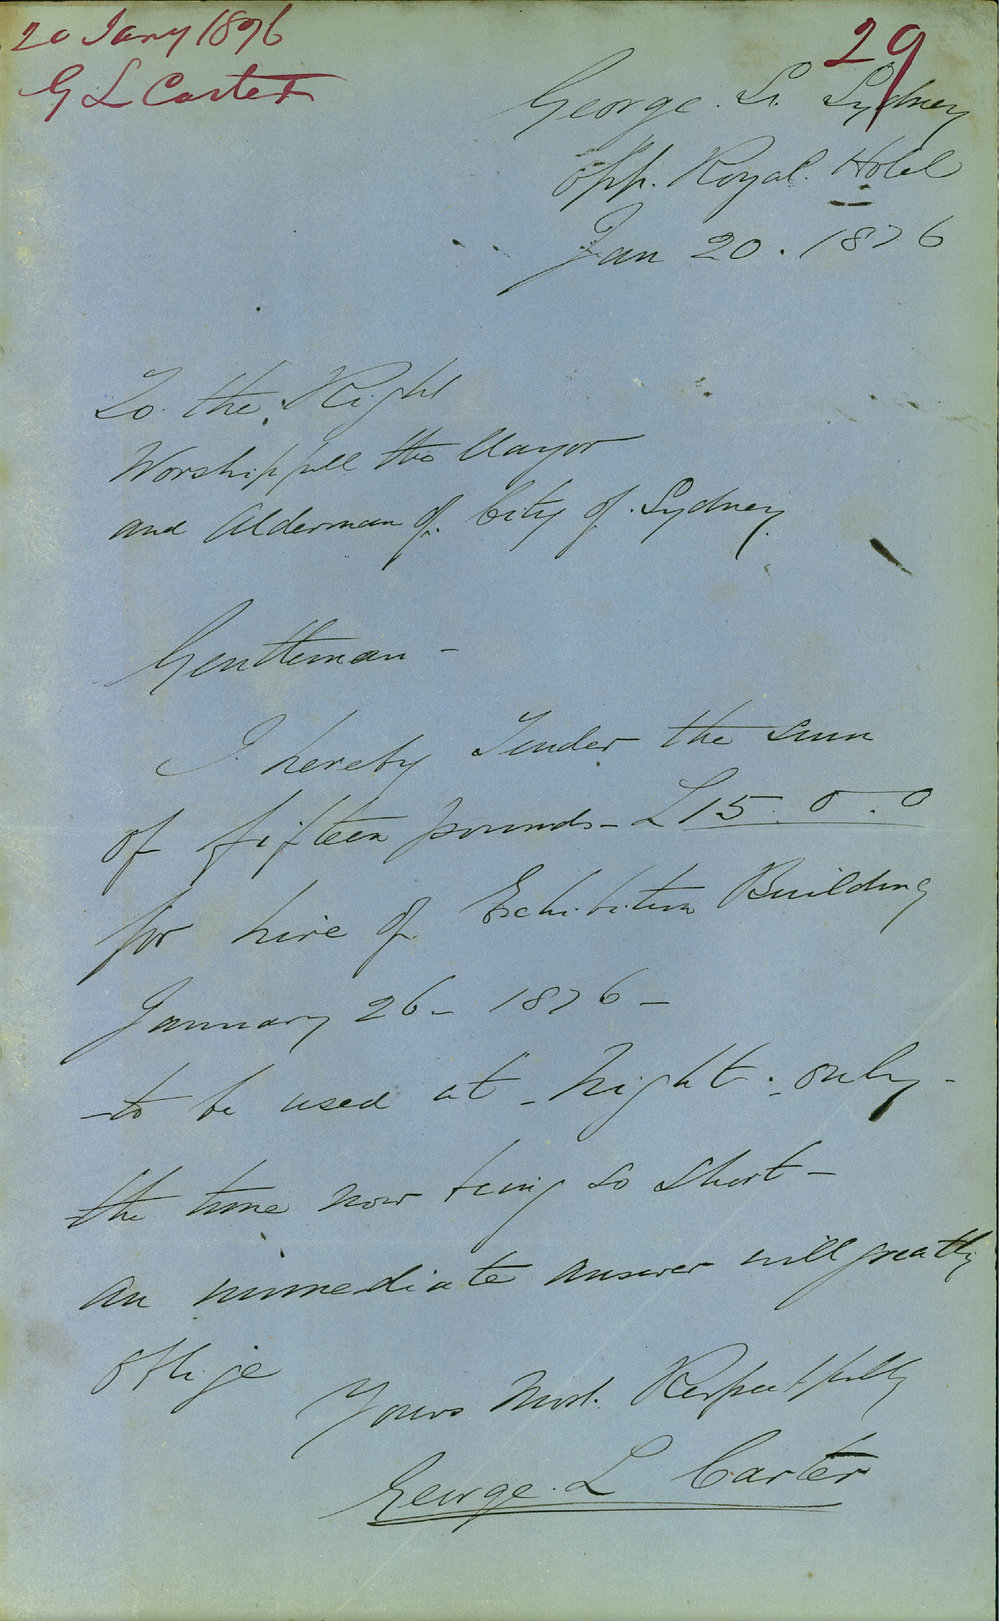 20 Jany 1876
G L Carter
29
George. St. Sydney
opp. Royal. Hotel
Jan 20. 1876
To. the Right
Worshipfull the Mayor
and Alderman of. City of. Sydney.
Gentleman -
I hereby Tender the sum
of fifteen pounds - £15.0.0
for hire of Exhibition Building
January 26 - 1876 -
- to be used at - Night. only -
the time now being so short -
an immediate answer will greatly
oblige
Yours Most. Respectfully
George. L Carter